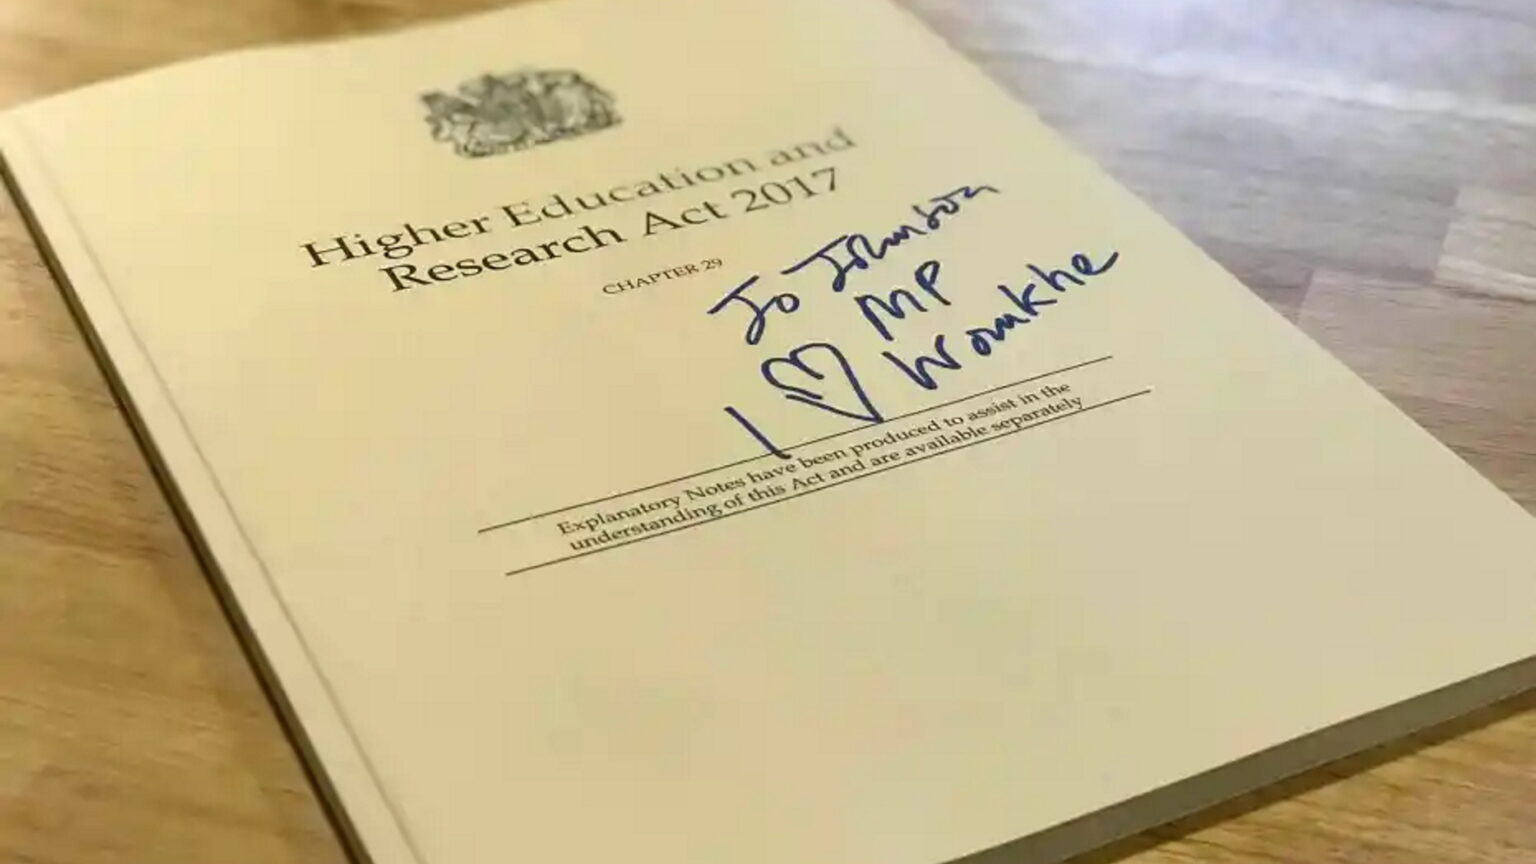 Higher Education and
Research Act 2017
CHAPTER 29
Jo Johnson
MP
I ♡ Wonkhe
Explanatory Notes have been produced to assist in the
understanding of this Act and are available separately